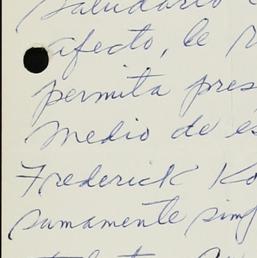 saludarlo
afecto, le
permita pres
medio de es
Frederick Ko
sumamente simp